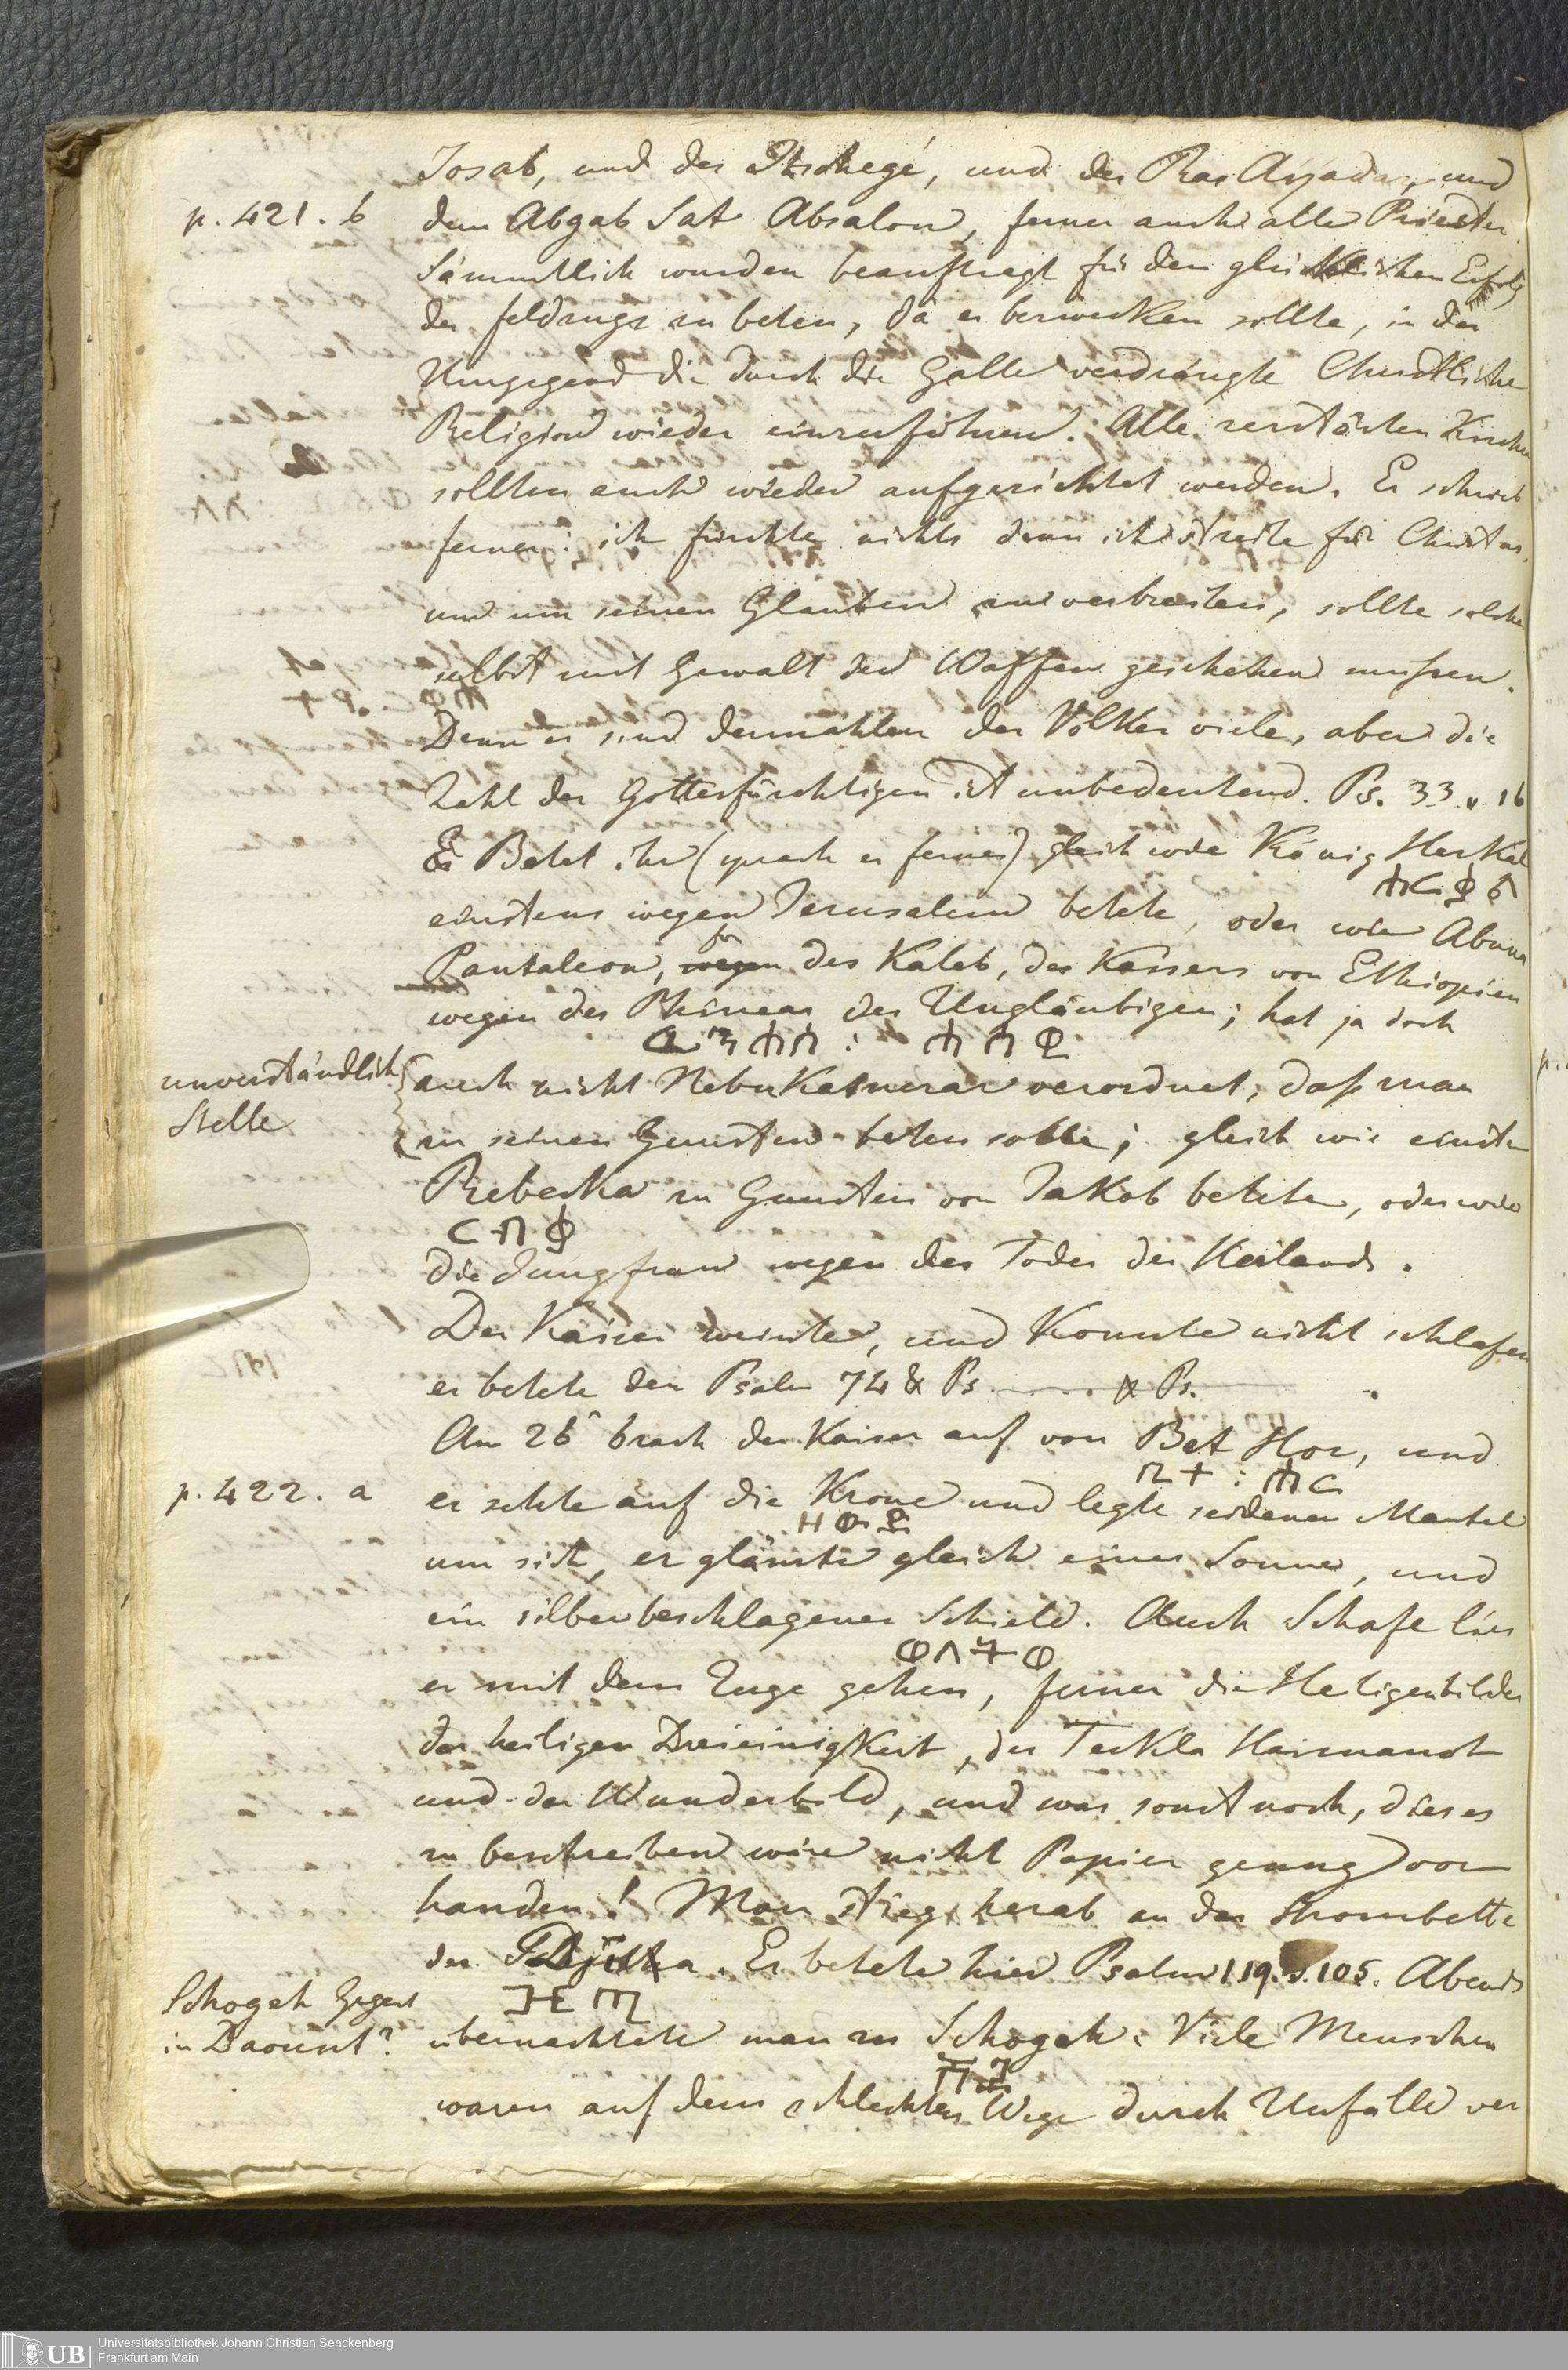 Josab, und der Itschegé, und der Ras Ayadar, und
p. 421. b
dem Abgab Sat Absalon, ferner auch alle Priester.
Sämmtlich wurden beauftragt für den glücklichen Erfolg
des Feldzugs zu beten, da er bezwecken sollte, in der
Umgegend die durch die Galla verdrängte Christliche
Religion wieder einzuführen. Alle zerstörten Kirchen
sollten auch wieder aufgerichtet werden. Er schrieb
ferner: ich fürchte nichts denn ich streite für Christus,
und um seinen Glauben zu verbreiten, sollte solches
selbst mit Gewalt der Waffen geschehen müssen.
Denn es sind dermahlen der Völker viele, aber die
Zahl der Gottesfürchtigen ist unbedeutend. Ps. 33 v. 16
Betet ihr (sprach er ferner) gleich wie König Herkal
ሕርቃል
einstens wegen Jerusalem betete, oder wie Abuna
Pantaleon, wegen für des Kaleb, des Kaisers von Ethiopien
wegen des Phineas des Ungläubigen; hat ja doch
ፊንሐስ : ሐሰዊ
unverständliche
Stelle
auch nicht Nebukatnezar verordnet, daß man
zu seinen Gunsten beten solle; gleich wie einsten
Rebecka zu Gunsten von Jakob betete, oder wie
ርብቃ
die Jungfrau wegen des Todes des Heilands.
Der Kaiser weinte, und konnte nicht schlafen
er betete den Psalm 74 & Ps ...... & Ps.
Am 26ⁿ brach der Kaiser auf von Bet Hor, und
ቤተ : ሖር
p. 422. a
er setzte auf die Krone und legte seidenen Mantel
ዘውዱ
um sich, er glänzte gleich einer Sonne, und
ein silberbeschlagener Schield. Auch Schafe lies
er mit dem Zuge gehen, ferner die Heiligenbilder
der heiligen Dreieinigkeit, der Teckla Haimanot
und der Wunderbild, und was sonst noch, dieses
zu beschreiben wäre nicht Papier genug vor
handen! Man stieg herab an das Strombette
der Djitta. Er betete hier Psalm 119. v. 105. Abends
Schogeh Gegent
in Daount?
übernachtete man zu Schogeh. Viele Menschen
waren auf dem schlechten Wege durch Unfälle ver
Universitätsbibliothek Johann Christian Senckenberg
UB Frankfurt am Main